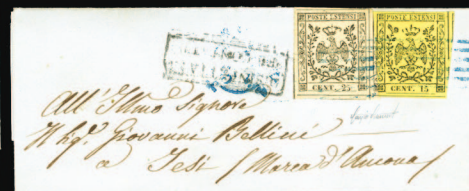 POSTE ESTENSI
CENT. 25
POSTE ESTENSI
CENT. 15
All' Illmo Signore
Il Sig.r Giovanni Bellini
a Jesi (Marca d'Ancona)